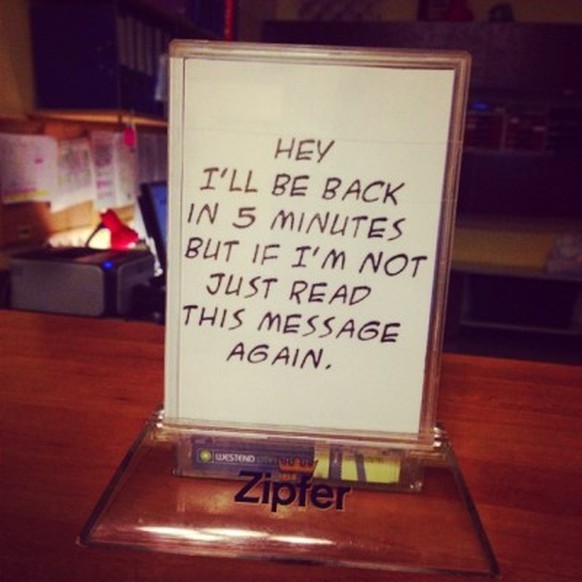 HEY
I'LL BE BACK
IN 5 MINUTES
BUT IF I'M NOT
JUST READ
THIS MESSAGE
AGAIN.
WESTEND
Zipfer